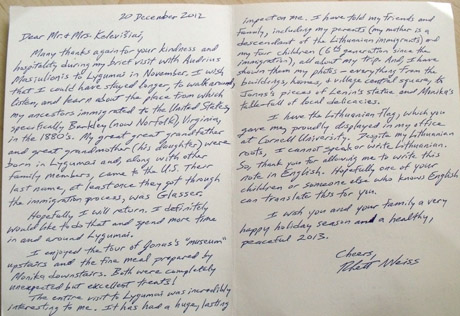 20 December 2012
Dear Mr. & Mrs. Kalovišiai,
Many thanks again for your kindness and
hospitality during my brief visit with Audrius
Masiulionis to Lygumai in November. I wish
that I could have stayed longer, to walk around,
listen, and learn about the place from which
my ancestors immigrated to the United States,
specifically Berkley (now Norfolk), Virginia,
in the 1880's. My great great grandfather
and great grandmother (his daughter) were
born in Lygumai and, along with other
family members, came to the U.S. Their
last name, at least once they got through
the immigration process, was Glasser.
Hopefully I will return. I definitely
would like to do that and spend more time
in and around Lygumai.
I enjoyed the tour of Jonus's "museum"
upstairs and the fine meal prepared by
Monika downstairs. Both were completely
unexpected but excellent treats!
The entire visit to Lygumai was incredibly
interesting to me. It has had a huge, lasting
impact on me. I have told my friends and
family, including my parents (my mother is a
descendant of the Lithuanian immigrants) and
my four children (6th generation since the
immigration), all about my trip. And, I have
shown them my photos - everything from the
buildings, homes, & village central square, to
Jonus's pieces of Lenin's statue and Monika's
table-full of local delicacies.
I have the Lithuanian flag, which you
gave me, proudly displayed in my office
at Cornell University. Despite my Lithuanian
roots, I cannot speak or write Lithuanian.
So, thank you for allowing me to write this
note in English. Hopefully one of your
children or someone else who knows English
can translate this for you.
I wish you and your family a very
happy holiday season and a healthy,
peaceful 2013.
Cheers,
Rhett N Weiss